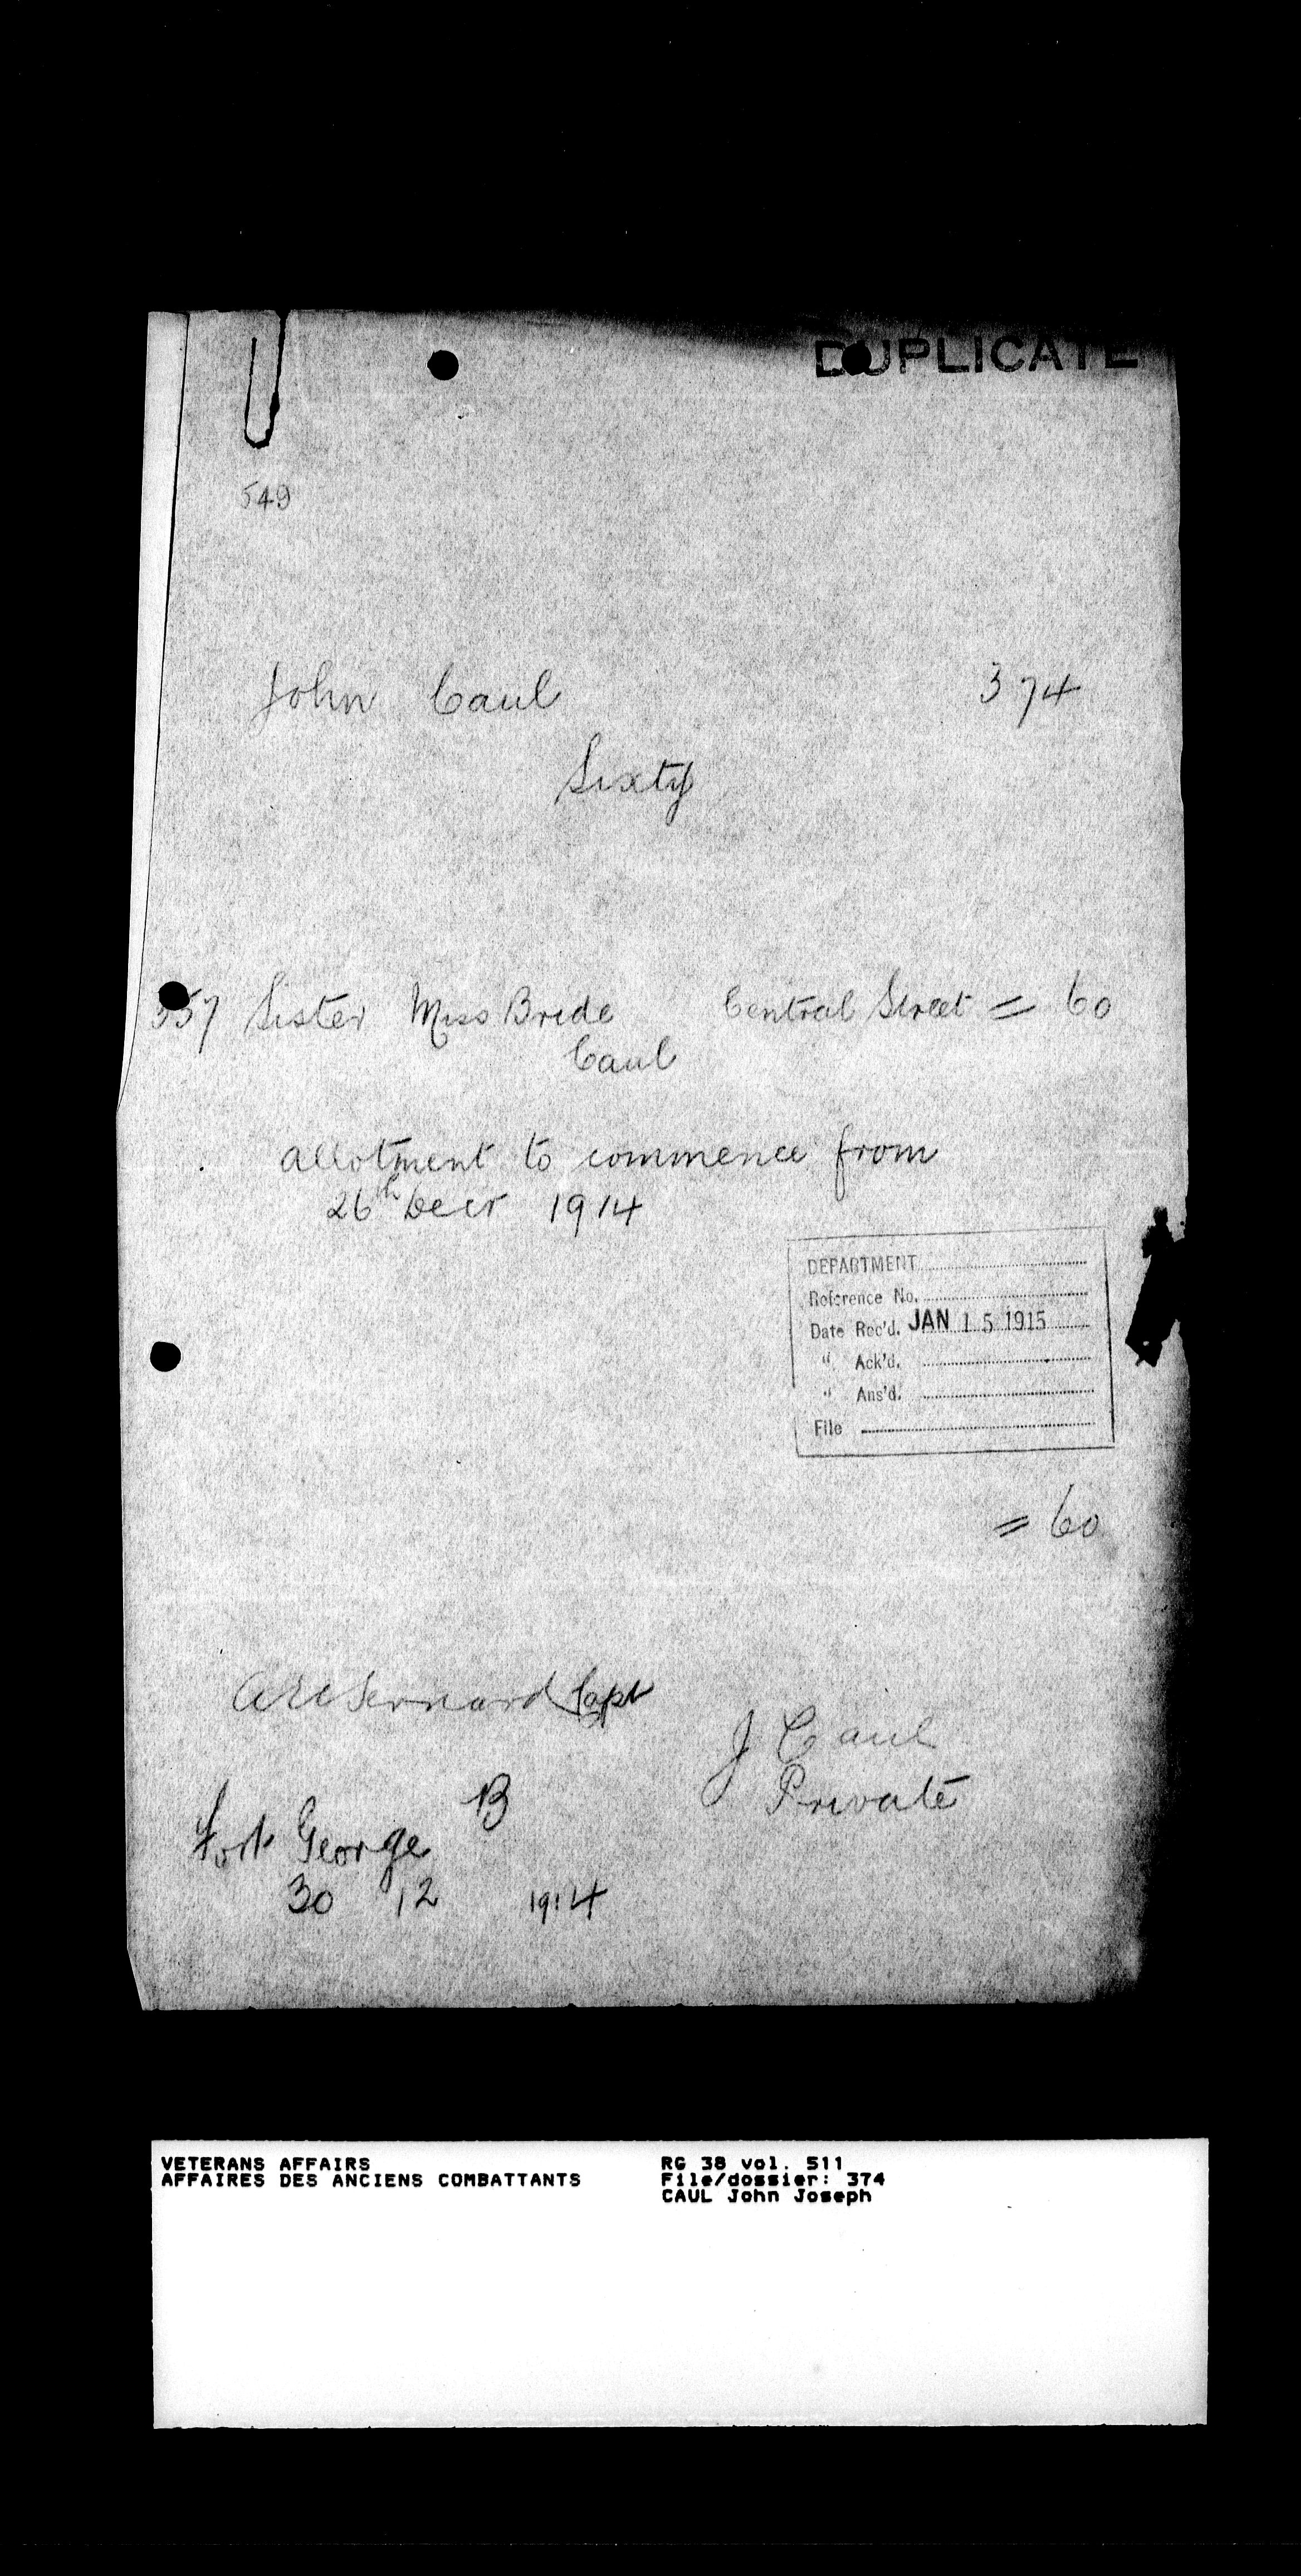 DUPLICATE
549
John Caul 374
Sixty
357 Sister Miss Bride Central Street = 60
Caul
allotment to commence from
26th Decr 1914
DEPARTMENT
Reference No.
Date Rec'd. JAN 15 1915
" Ack'd.
" Ans'd.
File
= 60
Capt
J Caul
Private
B
Fort George
30 12 1914
VETERANS AFFAIRS RG 38 vol. 511
AFFAIRES DES ANCIENS COMBATTANTS File/dossier: 374
CAUL John Joseph